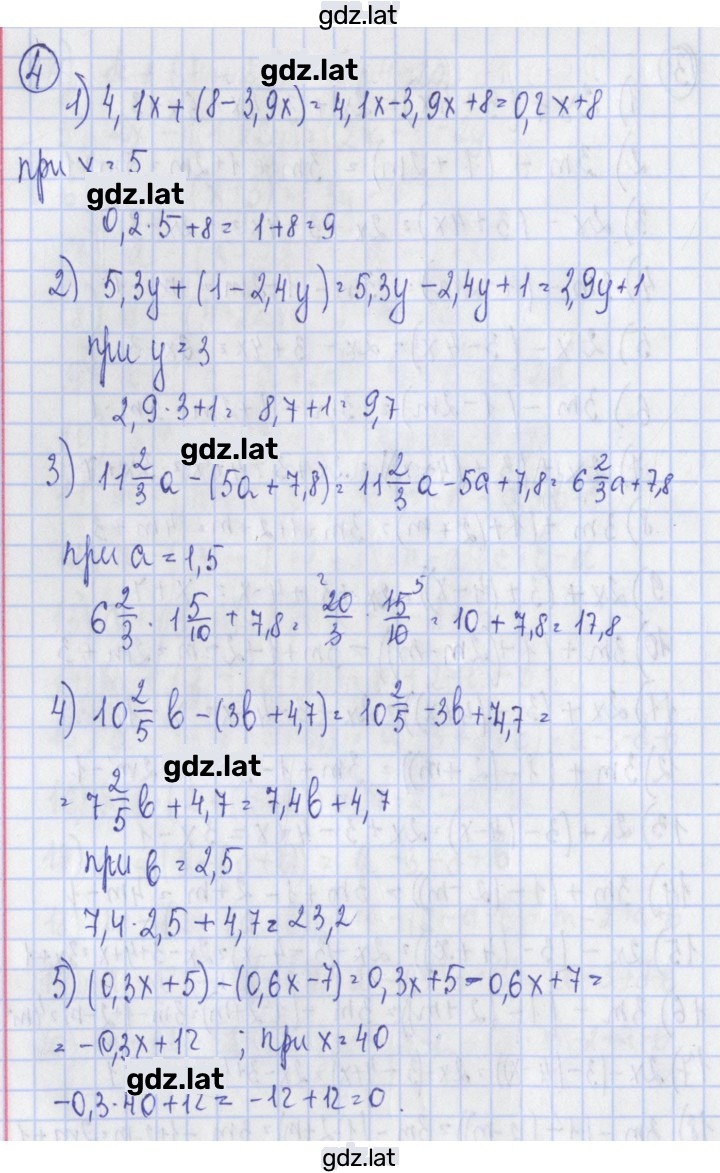 gdz.lat
4
gdz.lat
1) 4,1x + (8 - 3,9x) = 4,1x - 3,9x + 8 = 0,2x + 8
при x = 5
gdz.lat
0,2 · 5 + 8 = 1 + 8 = 9
2) 5,3y + (1 - 2,4y) = 5,3y - 2,4y + 1 = 2,9y + 1
при y = 3
2,9 · 3 + 1 = 8,7 + 1 = 9,7
gdz.lat
3) 11 2/3 a - (5a + 7,8) = 11 2/3 a - 5a + 7,8 = 6 2/3 a + 7,8
при a = 1,5
6 2/3 · 1 5/10 + 7,8 = 20/3 · 15/10 = 10 + 7,8 = 17,8
4) 10 2/5 b - (3b + 4,7) = 10 2/5 - 3b + 4,7 =
gdz.lat
= 7 2/5 b + 4,7 = 7,4b + 4,7
при b = 2,5
7,4 · 2,5 + 4,7 = 23,2
5) (0,3x + 5) - (0,6x - 7) = 0,3x + 5 - 0,6x + 7 =
= -0,3x + 12 ; при x = 40
gdz.lat
-0,3 · 40 + 12 = -12 + 12 = 0.
gdz.lat